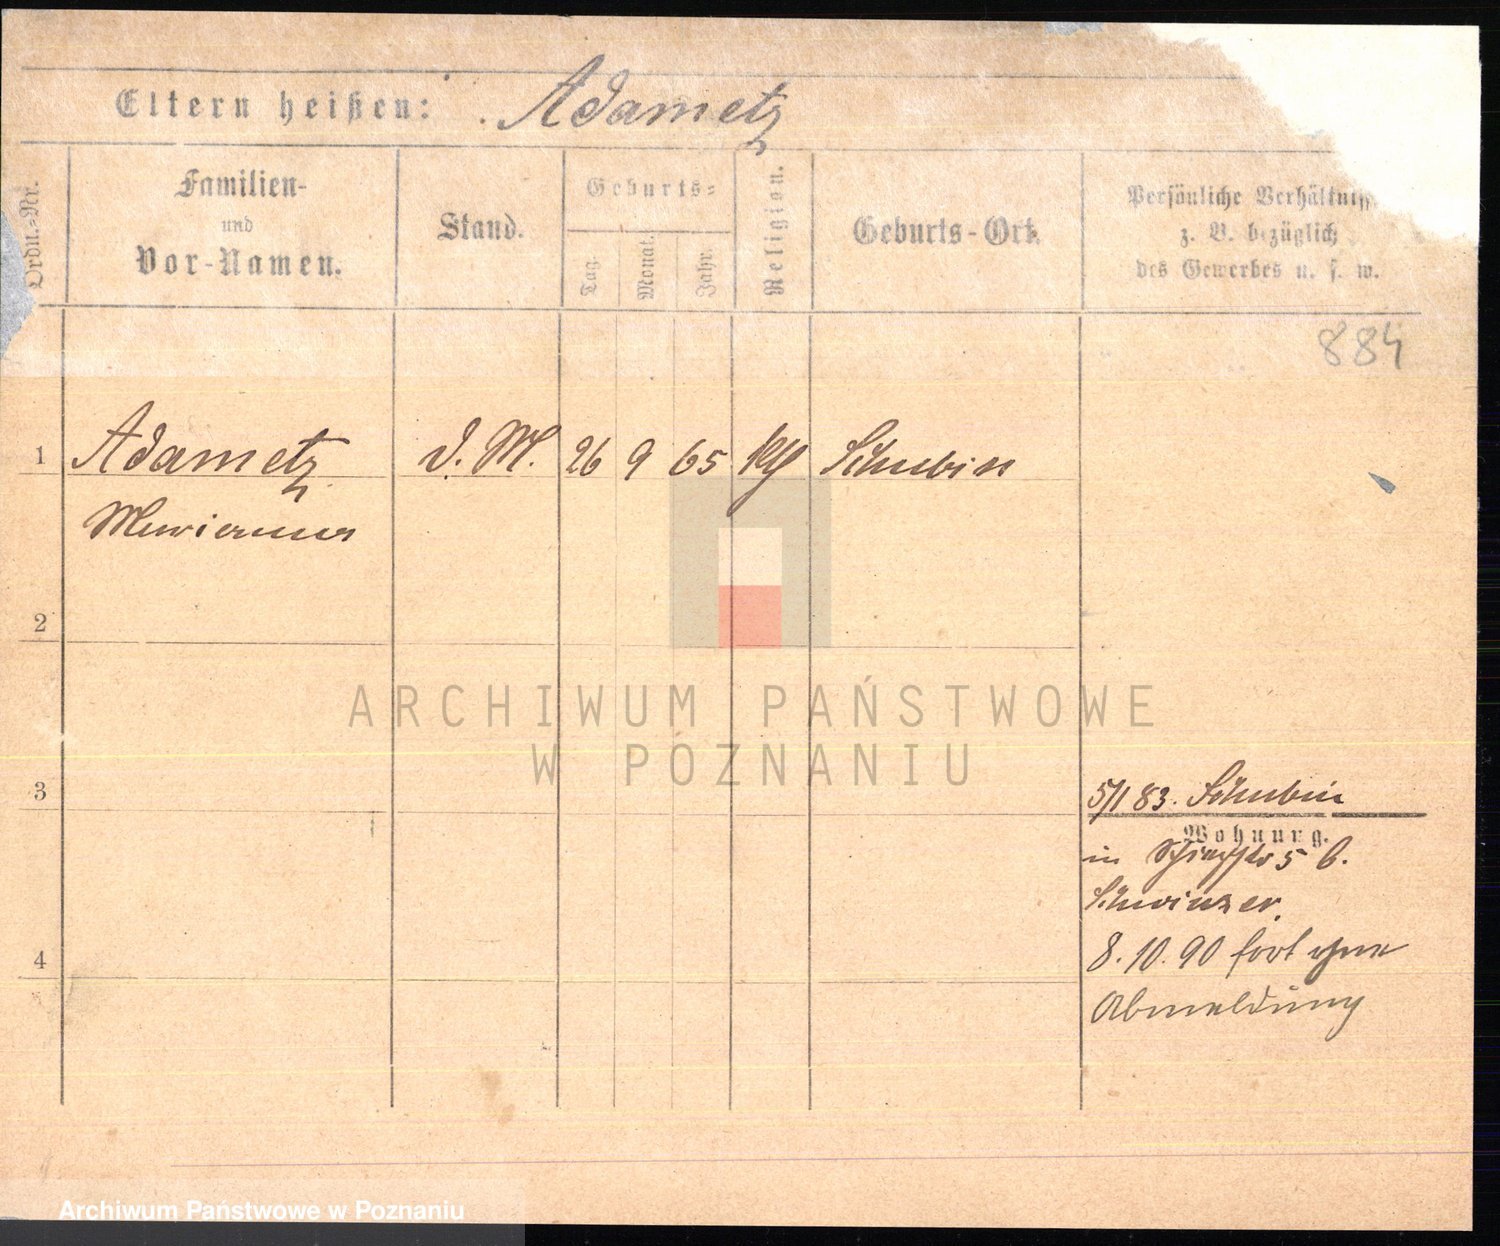 Eltern heißen: Adametz
Ordn.-Nr.
Familien-
und
Vor-Namen.
Stand.
Geburts-
Tag.
Monat.
Jahr.
Religion.
Geburts-Ort.
Persönliche Verhältniss
z. B. bezüglich
des Gewerbes u. s. w.
884
1 Adametz D. M. 26 9 65 Schubin
Marianna
2
3
5/1 83. Schubin
Wohnung.
in 5 b.
8. 10. 90 fort ohne
4
Abmeldung
ARCHIWUM PAŃSTWOWE
W POZNANIU
Archiwum Państwowe w Poznaniu